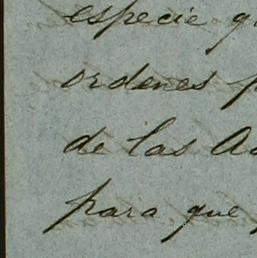 especie
ordenes
de las
para que